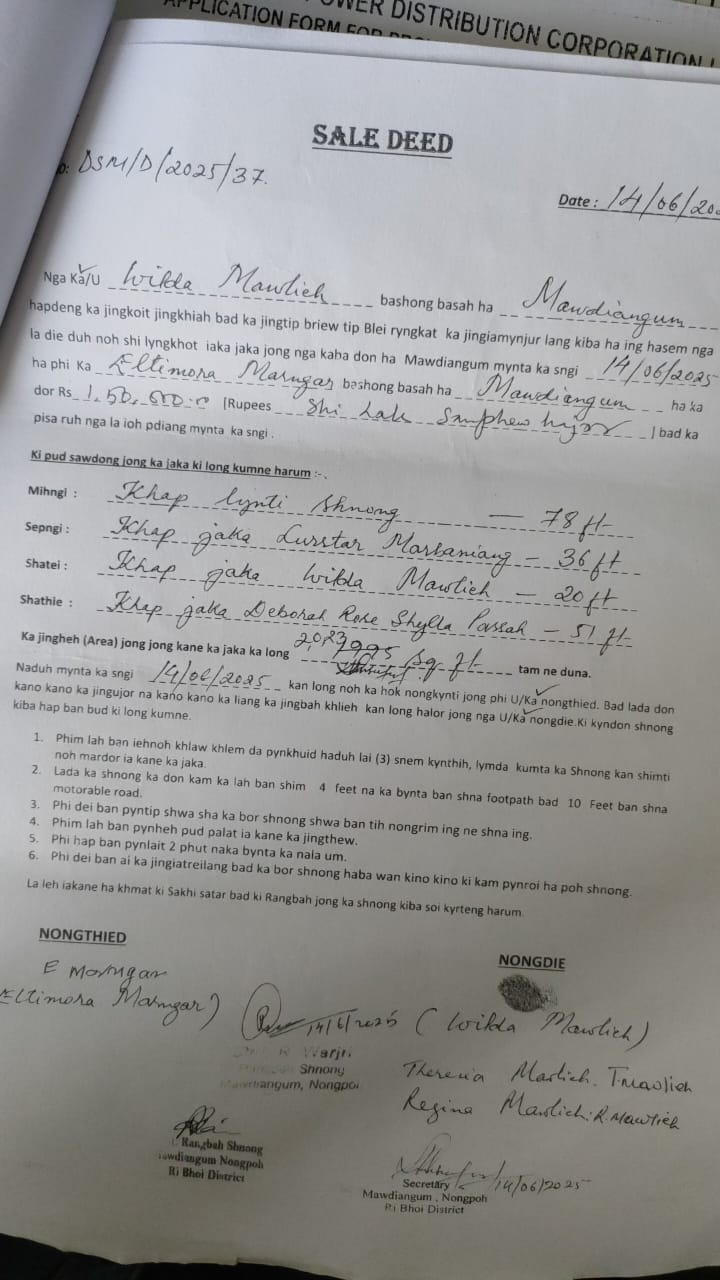 POWER DISTRIBUTION CORPORATION L
APPLICATION FORM FOR
SALE DEED
DSM/D/2025/37.
Date : 14/06/202
Nga Ka/U Wilda Mawlieh bashong basah ha Mawdiangum
hapdeng ka jingkoit jingkhiah bad ka jingtip briew tip Blei ryngkat ka jingiamynjur lang kiba ha ing hasem nga
la die duh noh shi lyngkhot iaka jaka jong nga kaha don ha Mawdiangum mynta ka sngi 14/06/2025
ha phi Ka Eltimora Marngar bashong basah ha Mawdiangum ha ka
dor Rs 1,50,000.00 [Rupees Shi Lak Sanphew hajar ] bad ka
pisa ruh nga la ioh pdiang mynta ka sngi .
Ki pud sawdong jong ka jaka ki long kumne harum :-.
Mihngi : Khap lynti Shnong — 78 ft
Sepngi : Khap jaka Lurstar Marbaniang – 36 ft
Shatei : Khap jaka Wilda Mawlieh – 20 ft
Shathie : Khap jaka Deborah Rose Shylla Passah – 51 ft
Ka jingheh (Area) jong jong kane ka jaka ka long Sq. ft tam ne duna.
Naduh mynta ka sngi 14/06/2025 kan long noh ka hok nongkynti jong phi U/Ka nongthied. Bad lada don
kano kano ka jingujor na kano kano ka liang ka jingbah khlieh kan long halor jong nga U/Ka nongdie.Ki kyndon shnong
kiba hap ban bud ki long kumne.
1. Phim lah ban iehnoh khlaw khlem da pynkhuid haduh lai (3) snem kynthih, lymda kumta ka Shnong kan shimti
noh mardor ia kane ka jaka.
2. Lada ka shnong ka don kam ka lah ban shim 4 feet na ka bynta ban shna footpath bad 10 Feet ban shna
motorable road.
3. Phi dei ban pyntip shwa sha ka bor shnong shwa ban tih nongrim ing ne shna ing.
4. Phim lah ban pynheh pud palat ia kane ka jingthew.
5. Phi hap ban pynlait 2 phut naka bynta ka nala um.
6. Phi dei ban ai ka jingiatreilang bad ka bor shnong haba wan kino kino ki kam pynroi ha poh shnong.
La leh iakane ha khmat ki Sakhi satar bad ki Rangbah jong ka shnong kiba soi kyrteng harum
NONGTHIED
NONGDIE
E Marngar
(Eltimora Marngar)
14/6/2025 (Wilda Mawlieh)
R Warjri
Shnong
Mawdiangum, Nongpoh
Theresia Mawlieh. T.mawlieh
Regina Mawlieh: R. Mawlieh
Rangbah Shnong
Mawdiangum Nongpoh
Ri Bhoi District
14/06/2025
Secretary
Mawdiangum , Nongpoh
Ri Bhoi District